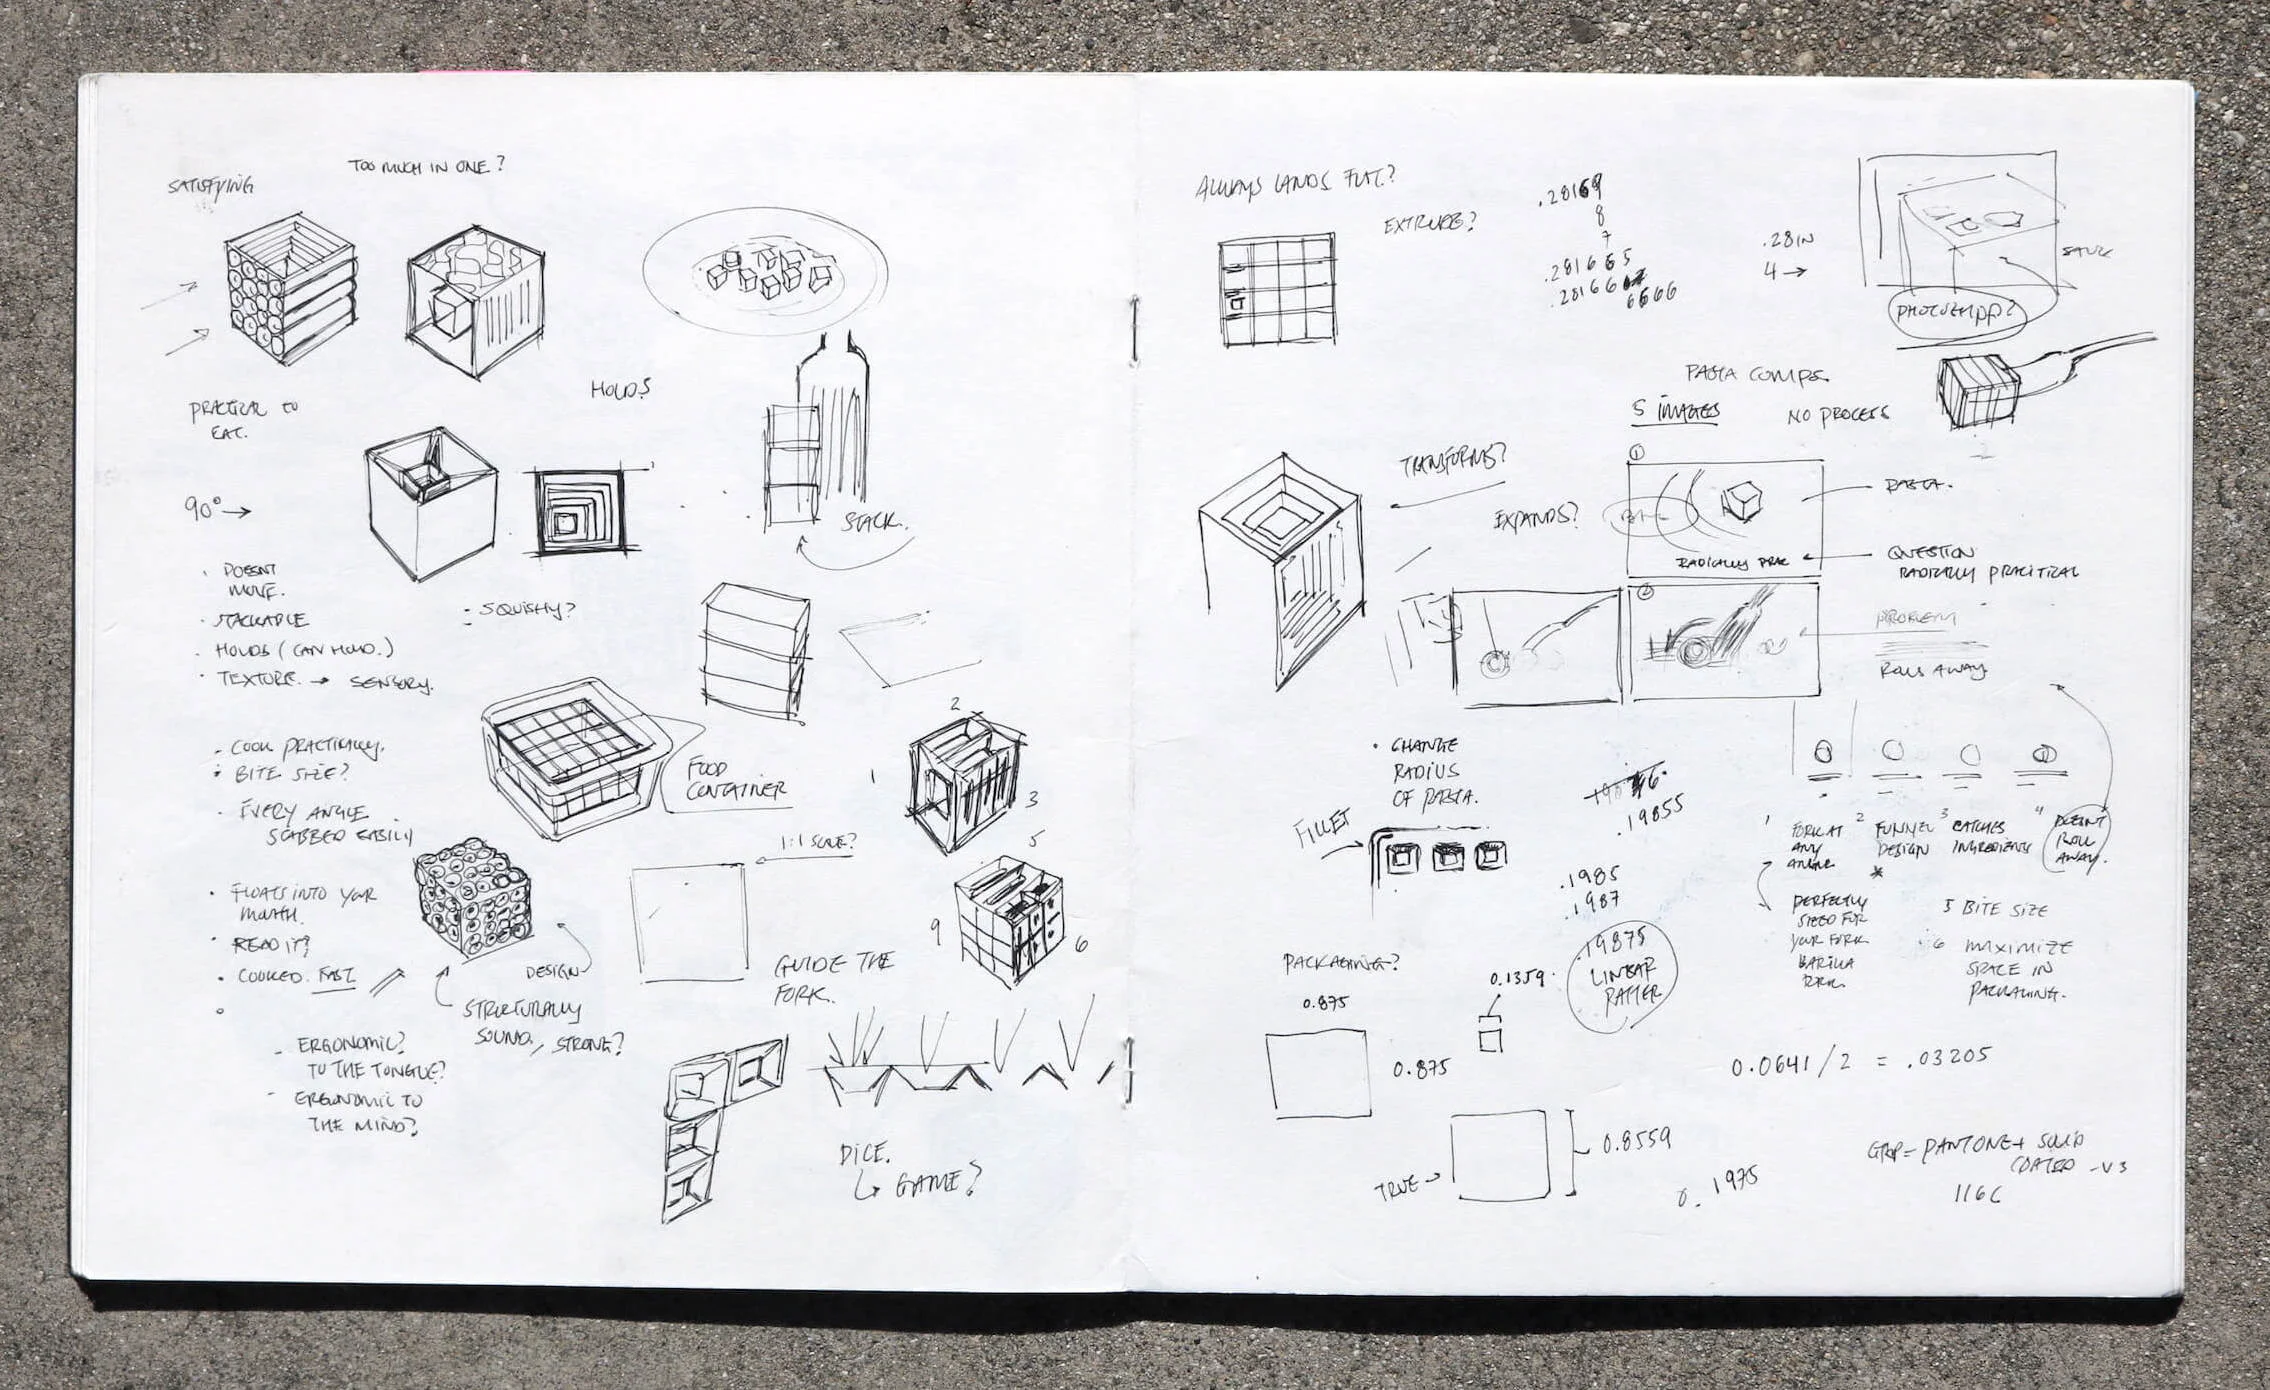 SATISFYING
TOO MUCH IN ONE?
PRACTICAL TO
EAT.
HOLDS
90° →
STACK.
• DOESNT
MOVE.
• STACKABLE
• HOLDS (CAN HOLD.)
• TEXTURE. → SENSORY.
SQUISHY?
• COOK PRACTICALLY.
• BITE SIZE?
• EVERY ANGLE
STABBED EASILY
FOOD
CONTAINER
1
2
3
• FLOATS INTO YOUR
MOUTH.
• READ IT?
• COOKED. FAST
1:1 SCALE?
DESIGN
STRUCTURALLY
SOUND., STRONG?
GUIDE THE
FORK.
5
9
6
- ERGONOMIC?
TO THE TONGUE?
- ERGONOMIC TO
THE MIND?
DICE.
↳ GAME?
ALWAYS LANDS FLAT?
EXTRUDE?
.28169
8
7
.281665
.28166
6666
.28IN
4 →
SAUCE
PASTA COMPS.
5 IMAGES
NO PROCESS
TRANSFORMS?
EXPANDS?
1
RADICALLY PRAC
PASTA.
QUESTION
RADICALLY PRACTICAL
2
PROBLEM
ROLLS AWAY
• CHANGE
RADIUS
OF PASTA.
FILLET
.19855
.1985
.1987
.19875
LINEAR
PATTER
1 FORK AT
ANY
ANGLE
2 FUNNEL
DESIGN
*
3 CATCHES
INGREDIENTS
4 DOESNT
ROLL
AWAY.
PERFECTLY
SIZED FOR
YOUR FORK
BARILLA
5 BITE SIZE
6 MAXIMIZE
SPACE IN
PACKAGING.
PACKAGING?
0.875
0.875
0.1359
0.0641/2 = .03205
TRUE →
0.8559
0.1975
PANTONE+ SOLID
COATED -V3
116C